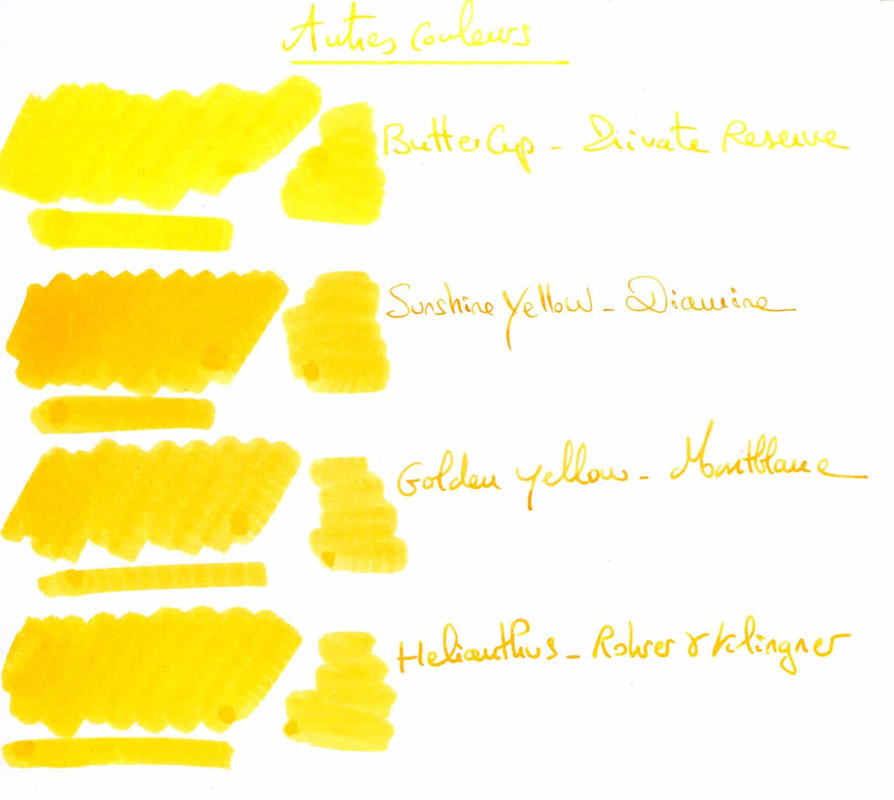 Autres couleurs
ButterCup - Private Reserve
Sunshine Yellow - Diamine
Golden yellow - Montblanc
Helianthus - Rohrer & Klingner